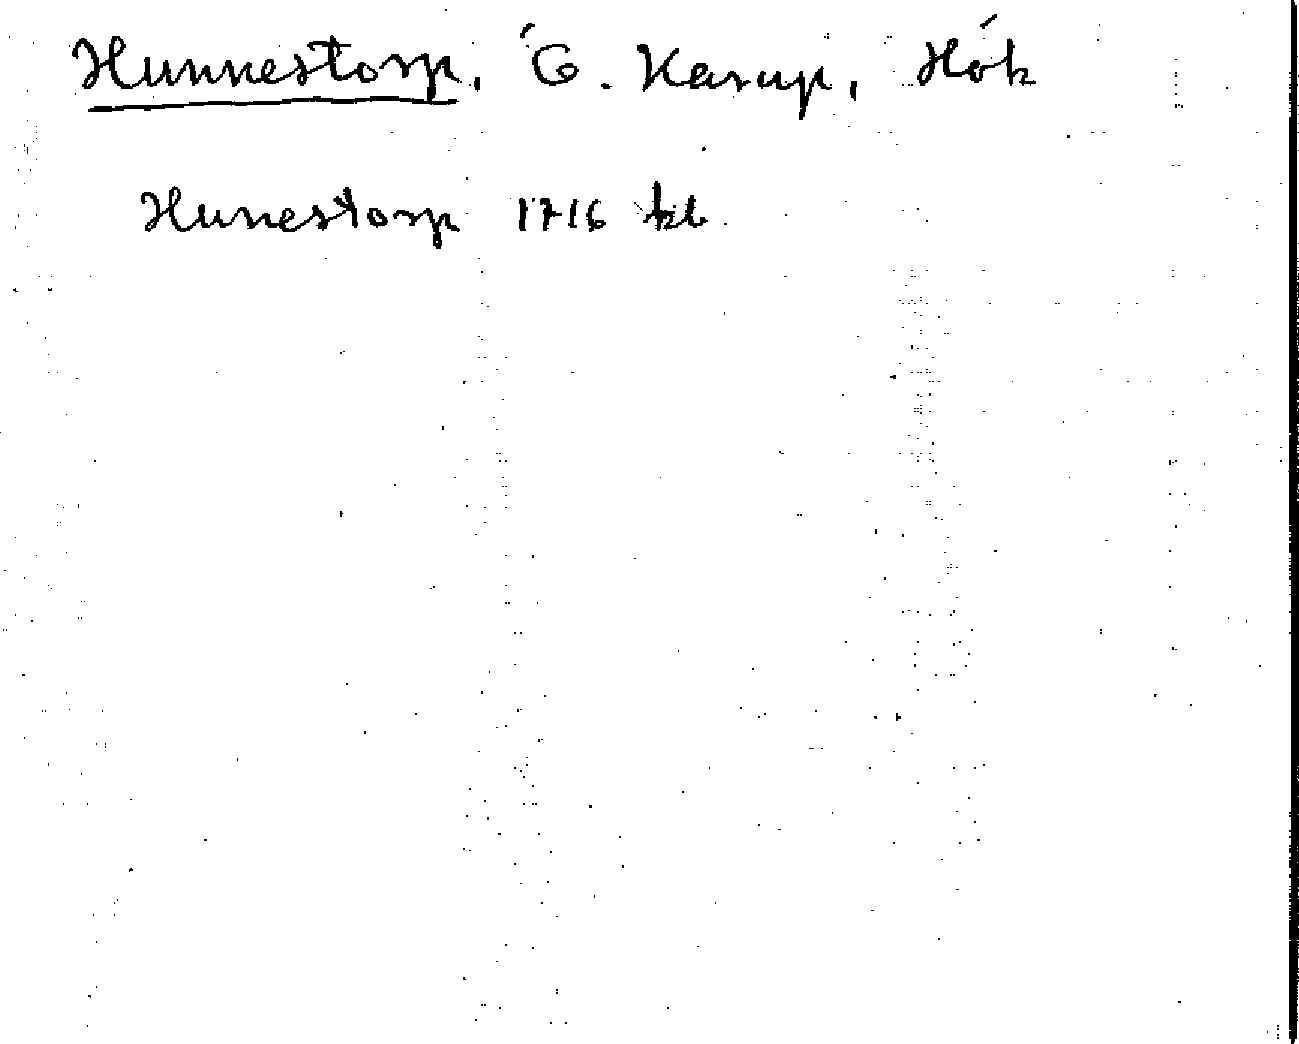 Hunnestorp, Ö. Karup, Hök
Hunestorp 1716 kb